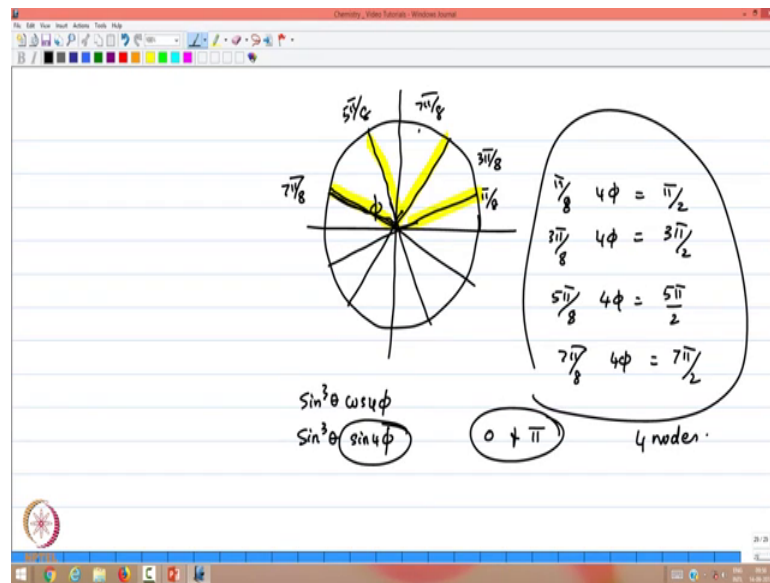 Chemistry_Video Tutorials - Windows Journal
File Edit View Insert Actions Tools Help
B I
5π/8
7π/8
3π/8
7π/8
π/8
ϕ
π/8 4ϕ = π/2
3π/8 4ϕ = 3π/2
5π/8 4ϕ = 5π/2
7π/8 4ϕ = 7π/2
sin³θ cos4ϕ
sin³θ sin4ϕ
0 & π
4 nodes.
NPTEL